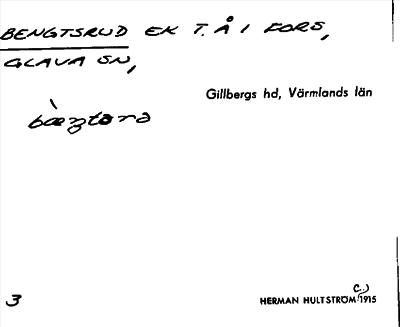 BENGTSRUD EK T. Å I FORS,
GLAVA SN,
Gillbergs hd, Värmlands län
3
HERMAN HULTSTRÖM (C.) 1915